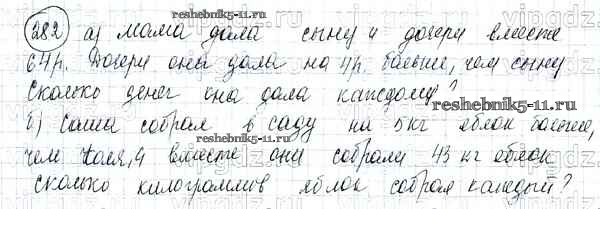 reshebnik5-11.ru
282 а) мама дала сыну и дочери вместе
64р. Дочери она дала на 4р. больше, чем сыну
Сколько денег она дала каждому?
reshebnik5-11.ru
б) Саша собрал в саду на 5кг яблок больше,
чем Коля, а вместе они собрали 43 кг яблок
сколько килограммив яблок собрал каждый?
reshebnik5-11.ru